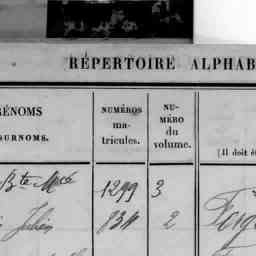 RÉPERTOIRE ALPHAB
RÉNOMS
SURNOMS.
NUMÉROS
ma-
tricules.
NU-
MÉRO
du
volume.
(Il doit ê
Bte
1299
3
Julien
2